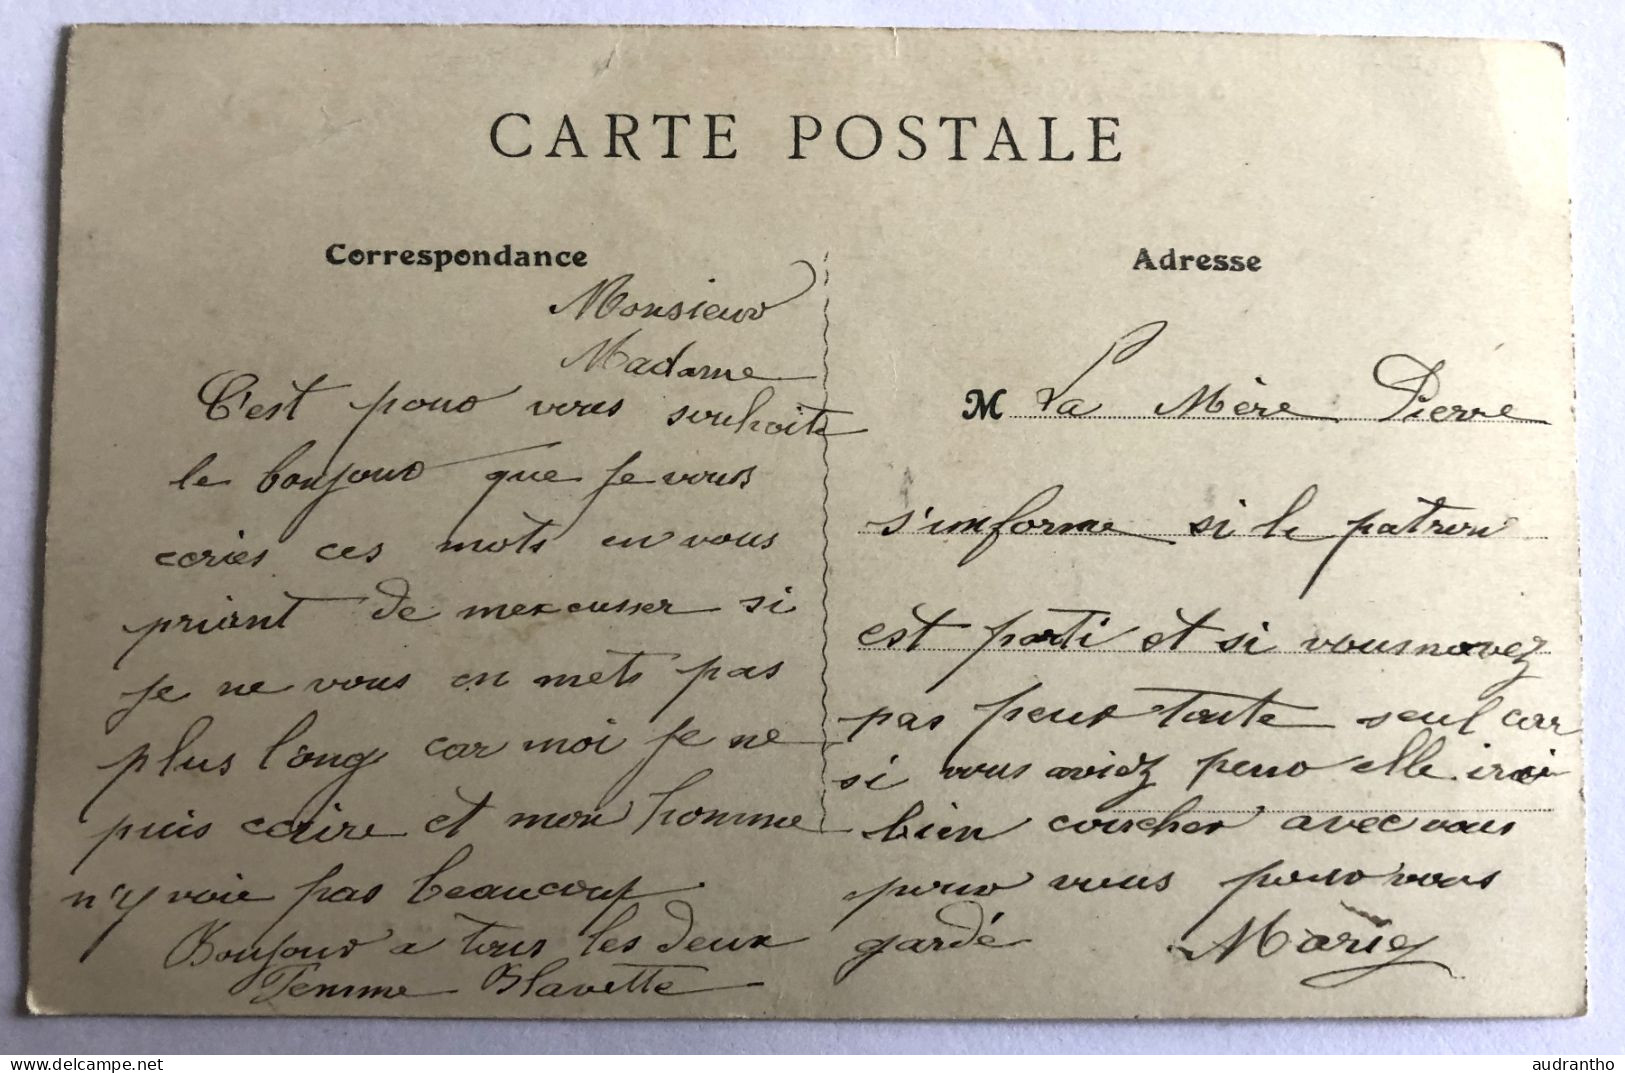 CARTE POSTALE
Correspondance
Monsieur
Madame
C'est pour vous souhaite
le bonjour que je vous
ecries ces mots en vous
priant de mexcusser si
je ne vous en mets pas
plus l'ong car moi je ne
puis ecrire et mon homme
n'y voie pas beaucoup
Bonjour a tous les deux
Femme Blavette
Adresse
M La Mère Pierre
s'imforme si le patron
est parti et si vous navez
pas peur toute seul car
si vous aviez peur elle irai
bien couscher avec vous
pour vous pour vous
gardé Marie
audrantho
delcampe.net